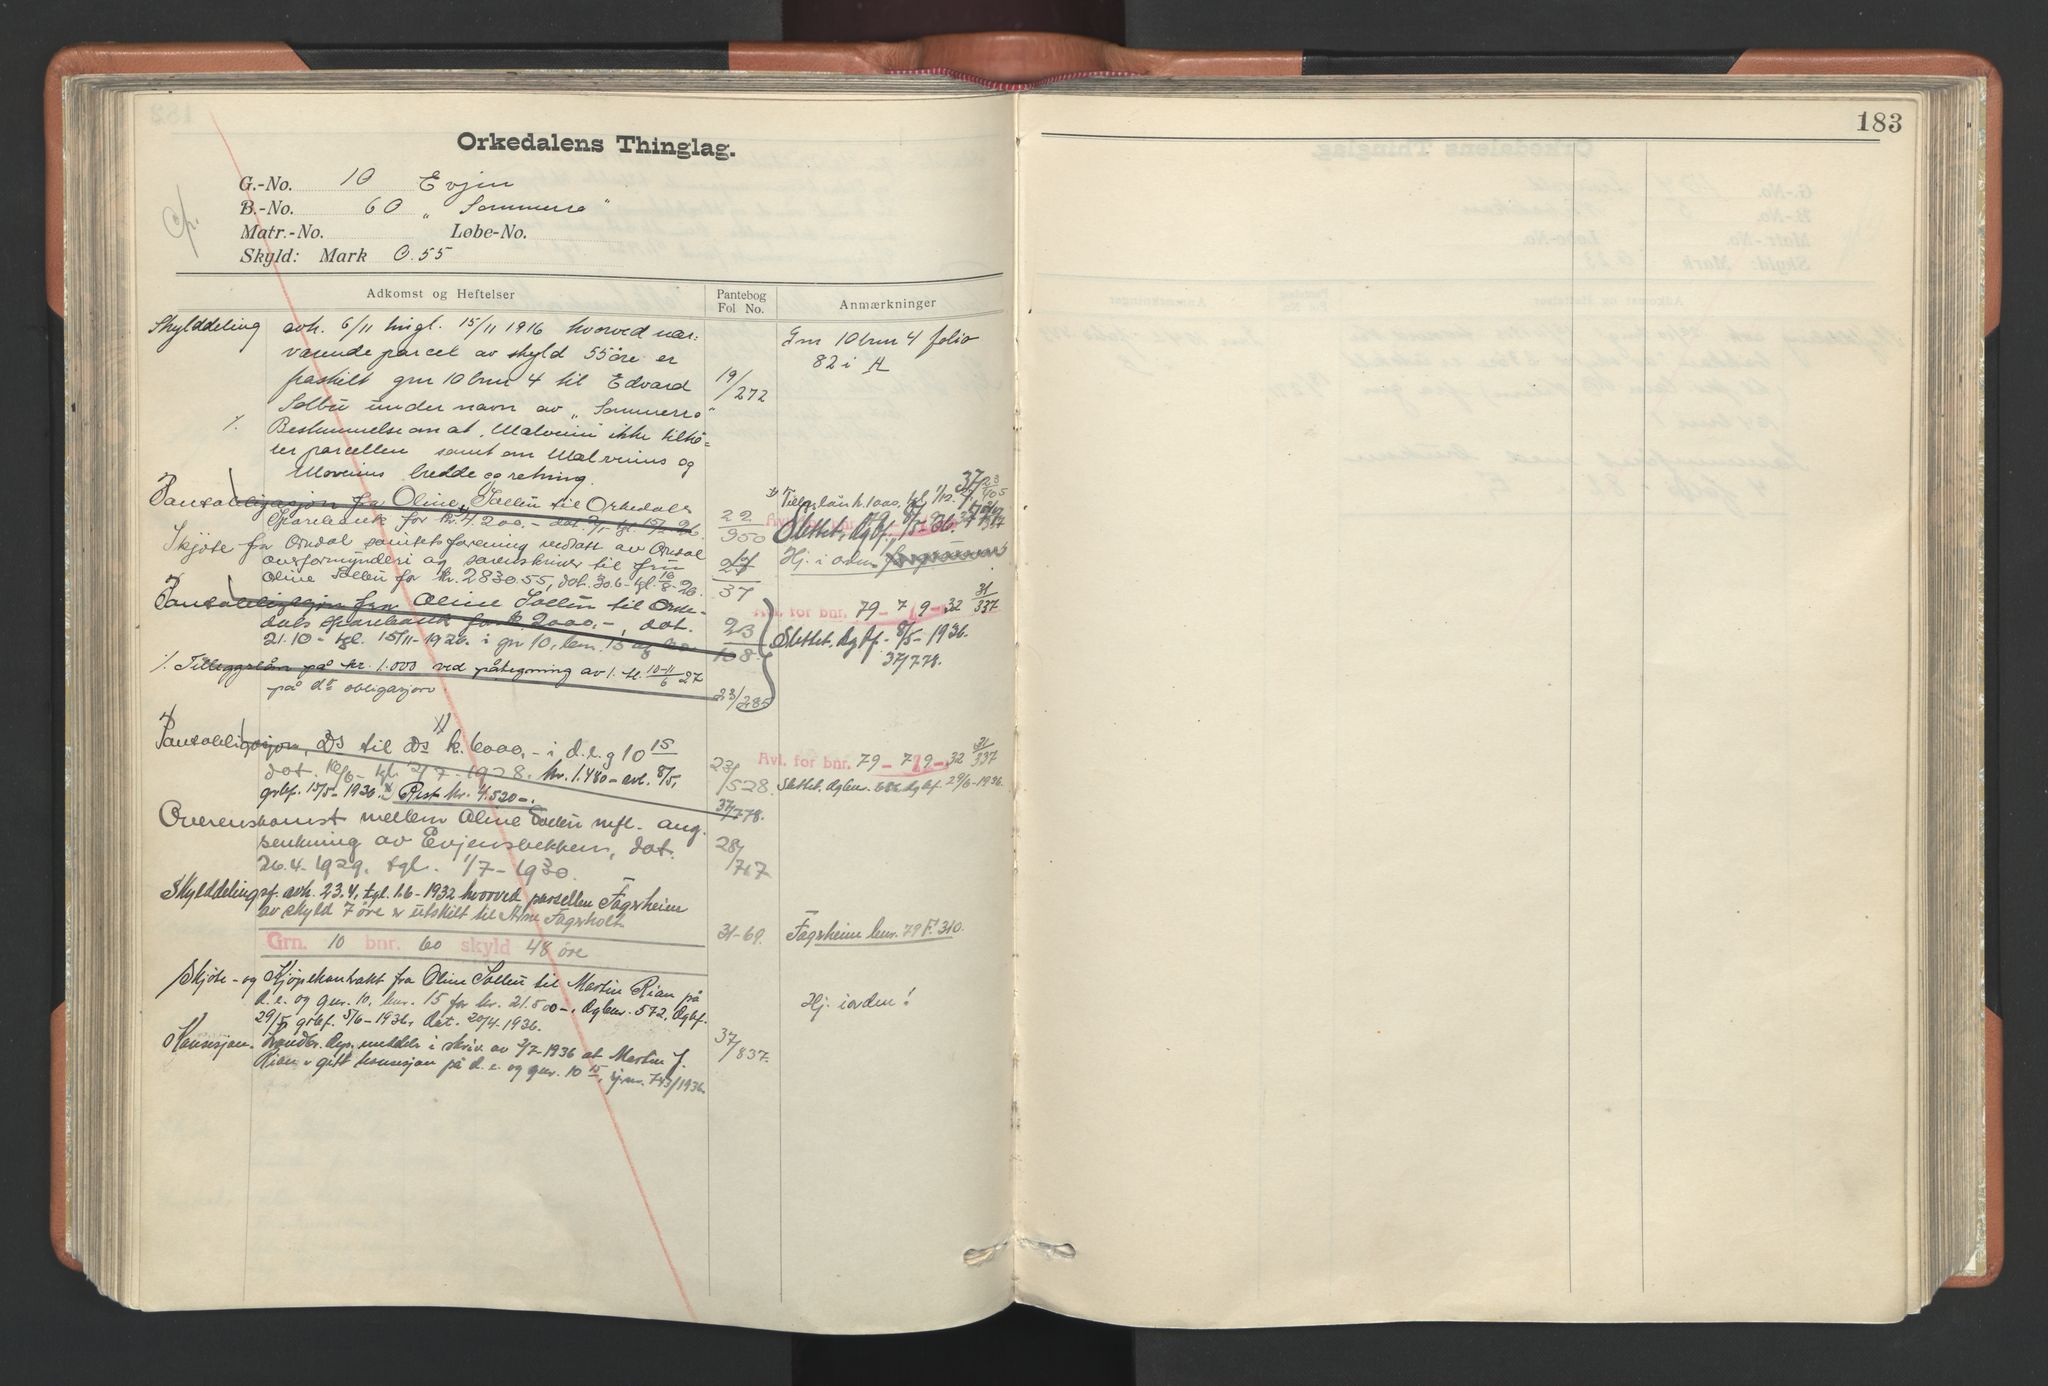 183
Orkedalens Thinglag.
G.-No. 10 Evjen
B.-No. 60 „Sommerro"
Matr.-No. Løbe-No.
Skyld: Mark 0.55
Adkomst og Heftelser
Pantebog Fol No.
Anmærkninger
Skylddeling avh. 6/11 tingl. 15/11 1916 hvorved nær-
værende parcel av skyld 55 øre er
fraskilt gnr 10 bnr 4 til Edvard
Solbu under navn av „Sommerro"
19/272
Gnr 10 bnr 4 folio
82 i A
Bestemmelse om at ikke tilhø-
rer parcellen samt om og
bredde og retning.
Pantobligasjon fra Oline Solbu til Orkedals
Sparebank for kr. 4.200.- dat.
22/950
1) Tilleggslån k. 1000,
Slettet, Dgbf. 8/5 36.
Skjøte fra Orkdal sanitetsforening vedtatt av Orkdal
overformynderi og sorenskriver til fru
Oline Solbu for kr. 2830.55, dat. 30.6 - tgl. 16/8-26.
23/37
Hj. i orden
Pantobligasjon fra Oline Solbu til Orke-
dals Sparebank for k 2000.-, dat.
21.10 - tgl. 15/11-1926. i gnr 10, bnr. 15 og 60.
23/108
Avl. for bnr. 79 - 7/9-32 31/337
Slettet. Dgbf. 8/5-1936.
37/778.
Tilleggslån på kr. 1.000 ved påtegning av 1. tl. 10-11/6 27
på ds obligasjon.
23/285
Pantobligasjon, Ds til Ds k. 6000.- i d.e. g 10 15
dat. 16/6 - tgl. 12/7-1928. kr. 1.480 - avl. 8/5,
grbf. 15/5-1936. Rest kr. 4.520-.
23/528
37/778.
Avl. for bnr. 79 - 7/9-32 31/337
Slettet. Dgbnr. 686 Dgbf. 29/6-1936.
Overenskomst mellem Oline Solbu mfl. ang.
senkning av Evjensbekken, dat.
26.4.1929. tgl. 1/7-1930.
28/767
Skylddelingsf. avh. 23.4, tgl. 1.6-1932 hvorved parsellen Fagerheim
av skyld 7 øre er utskilt til Arne Fagerholt.
31-69.
Fagerheim bnr. 79 F. 310.
Grn. 10 bnr. 60 skyld 48 øre
Skjøte- og Kjøpekontrakt fra Oline Solbu til Martin Rian på
d. e. og gnr. 10, bnr. 15 for kr. 21.500-, Dgbnr. 572, Dgbf.
29/5, grbf. 5/6-1936, dat. 20/4-1936.
37/837.
Hj. i orden!
Konsesjon. Landbr. Dep. meddeler i skriv av 2/7-1936 at Martin J.
Rian er gitt konsesjon på d. e. og gnr. 10 15, 743/1936.